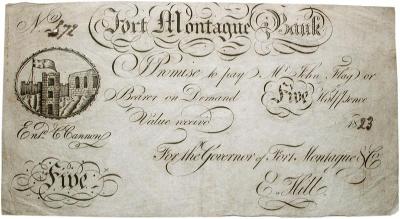 No. 572 Fort Montague Bank
I Promise to pay Mr. John Flag or
Bearer on Demand Five Half/pence
Value receiv'd 1823
Entd. C Cannon
For the Governor of Fort Montague & Co.
Five
E. Hill